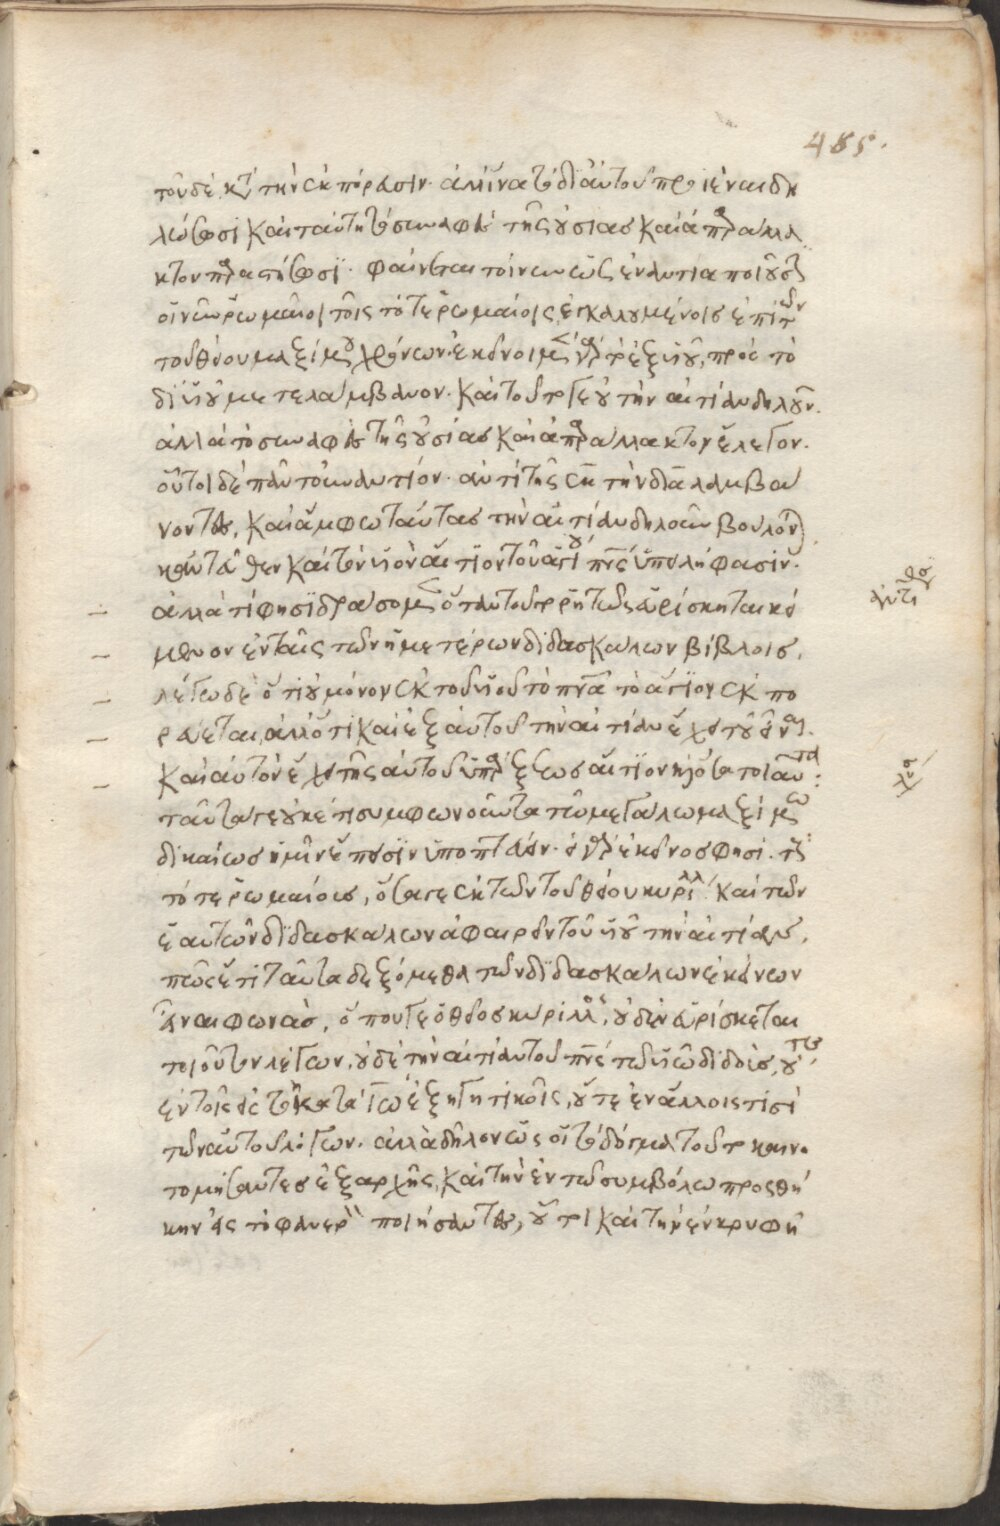 485.
τοῦδε κατὰ τὴν ἐκπόρευσιν. ἀλλ' ἵνα τὸ δι' αὐτοῦ προϊέναι δη
λώσωσι καὶ ταύτῃ τὸ συναφὲς τῆς οὐσίας καὶ ἀπαράλλα
κτον παραστήσωσι. φαίνονται τοίνυν ὡς ἐναντία ποιοῦντες
οἱ νῦν ῥωμαῖοι τοῖς τότε ῥωμαίοις ἐγκαλουμένοις ἐπὶ τῶν
τοῦ θείου μαξίμου χρόνων. ἐκεῖνοι μὲν γὰρ τὸ ἐξ υἱοῦ, πρὸς τὸ
δι' υἱοῦ μετελάμβανον. καὶ τοῦτο γε οὐ τὴν αἰτίαν δηλοῦν.
ἀλλὰ τὸ συναφὲς τῆς οὐσίας καὶ ἀπαράλλακτον ἔλεγον.
οὗτοι δὲ πᾶν τοὐναντίον. ἀντὶ τῆς ἐκ τὴν διὰ λαμβά
νοντες, καὶ ἄμφω ταύτας τὴν αἰτίαν δηλοῦν βούλονται
κἀντεῦθεν καὶ τὸν υἱὸν αἴτιον τοῦ ἁγίου πνεύματος ὑπειλήφασιν.
ἀλλὰ τί φησι δράσομεν ὅταν τοῦτο ῥητῶς εὑρίσκηται κεί
μενον ἐν ταῖς τῶν ἡμετέρων διδασκάλων βίβλοις.
λέγω δὲ ὅτι οὐ μόνον ἐκ τοῦ υἱοῦ τὸ πνεῦμα τὸ ἅγιον ἐκπο
ρεύεται, ἀλλ' ὅτι καὶ ἐξ αὐτοῦ τὴν αἰτίαν ἔχει τοῦ εἶναι.
καὶ αὐτὸν ἔχει τῆς αὐτοῦ ὑπάρξεως αἴτιον καὶ ὅσα τοιαῦτα:
ταῦτα γε οὐκέτι συμφωνοῦντα τῷ μεγάλῳ μαξίμῳ
δικαίως ἡμῖν ἔπεισιν ὑποπτεύειν. εἰ γὰρ ἐκεῖνος φησὶ τοῖς
τότε ῥωμαίοις, ὅσα γε ἐκ τῶν τοῦ θείου κυρίλλου καὶ τῶν
ἑαυτῶν διδασκάλων ἀφαιρεῖν τοῦ υἱοῦ τὴν αἰτίαν,
πῶς ἔτι ταῦτα δεξόμεθα τῶν διδασκάλων ἐκείνων
εἶναι φωνὰς, ὅπου γε ὁ θεῖος κύριλλος, οὐδὲν εὑρίσκεται
τοιοῦτον λέγων, οὐδὲ τὴν αἰτίαν τοῦ πνεύματος τῷ υἱῷ διδοὺς, οὔτε
ἐν τοῖς εἰς τὸ κατὰ ἰωάννην ἐξηγητικοῖς, οὔτε ἐν ἄλλοις τισὶ
τῶν αὐτοῦ λόγων. ἀλλὰ δῆλον ὡς οἱ τὸ δόγμα τοῦτο καινο
τομήσαντες ἐξαρχῆς, καὶ τὴν ἐν τῷ συμβόλῳ προσθή
κην εἰς τὸ φανερὸν ποιήσαντες, οὗτοι καὶ τὴν ἐν κρυφῆ
ἀντίθεσις
λύσις